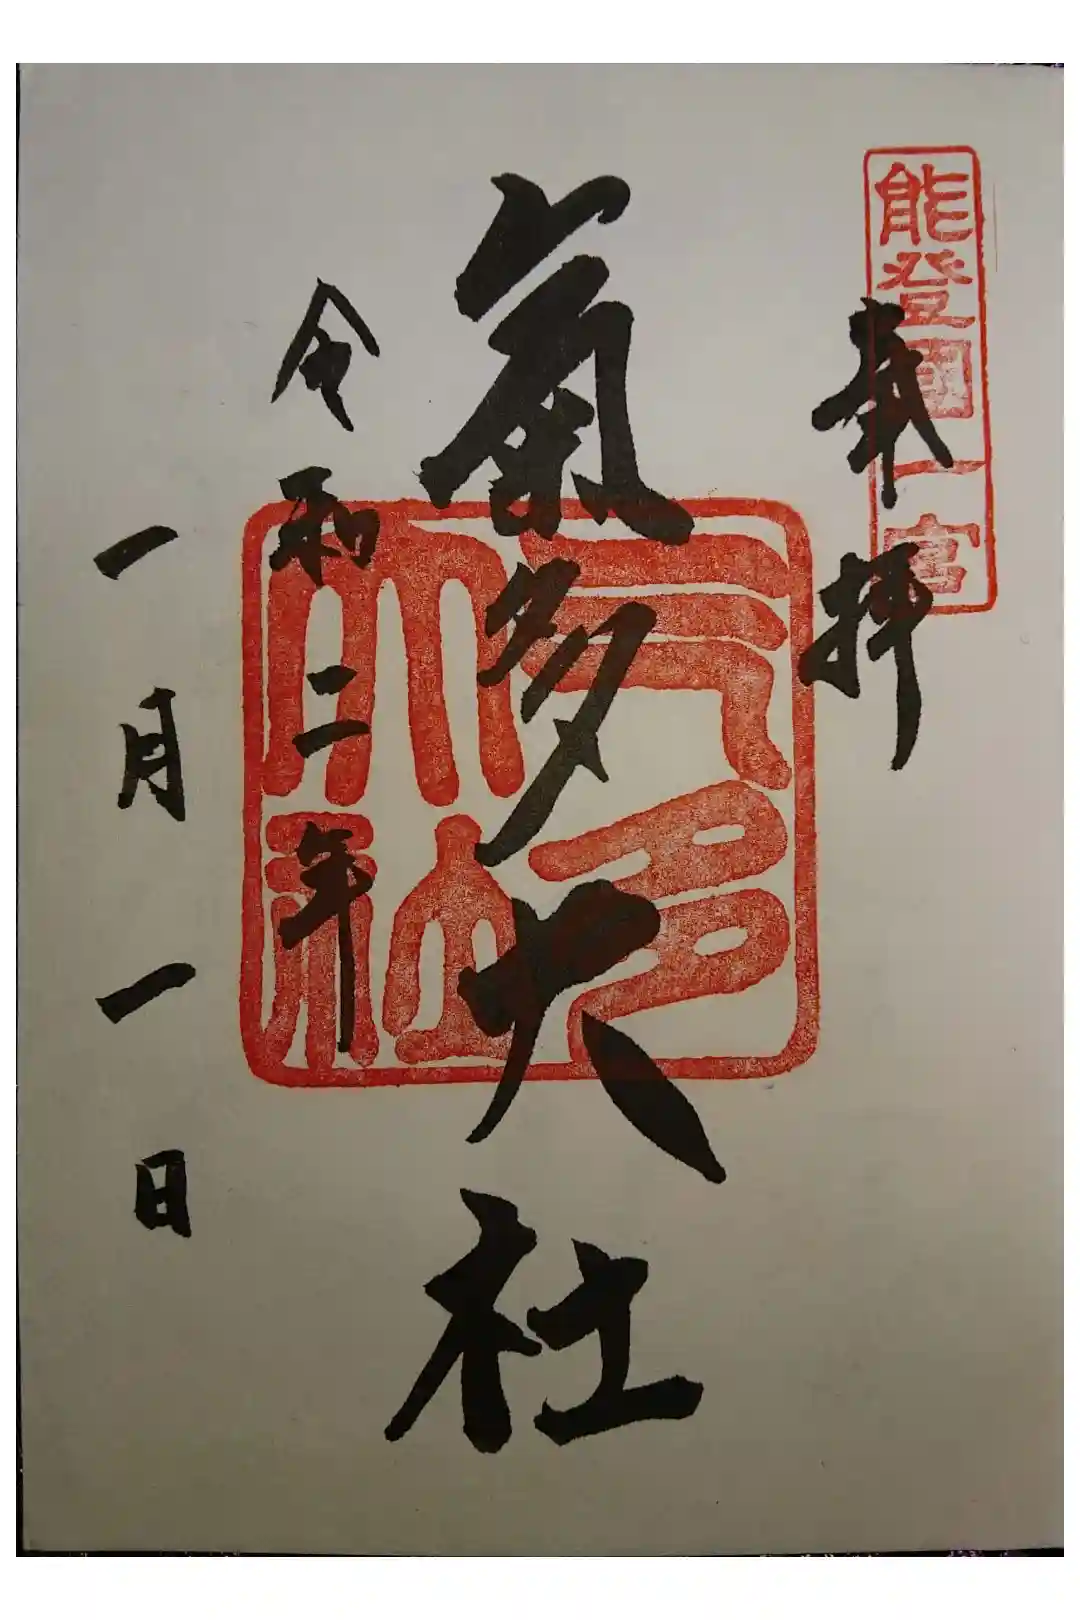 能登國一宮
奉拝
氣多大社
气多大社
令和二年
一月一日